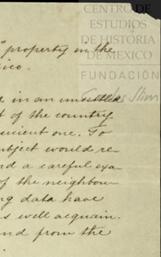 CENTRO DE
ESTUDIOS
DE HISTORIA
DE MEXICO
FUNDACIÓN
property in the
ico.
d in an unsettled
t of the country
nicient one. To
ubject would re-
nd a careful exa-
of the neighbou-
ng data have
s well acquain-
nd from the